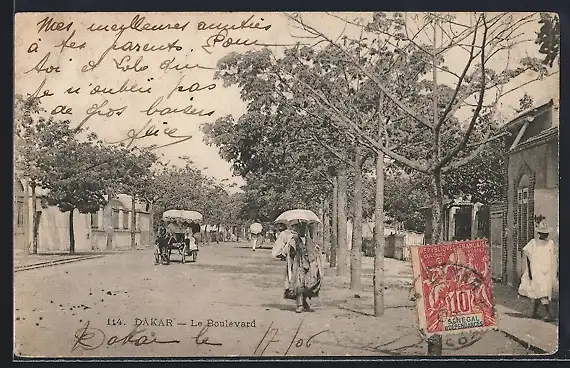 Mes meilleures amitiés
à tes parents. Pour
toi et Lolo
n'oublie pas
de gros baisers
114. DAKAR — Le Boulevard
Dakar le 17/06
RÉPUBLIQUE FRANÇAISE
COLONIES
POSTES
10
SÉNÉGAL
ET DÉPENDANCES